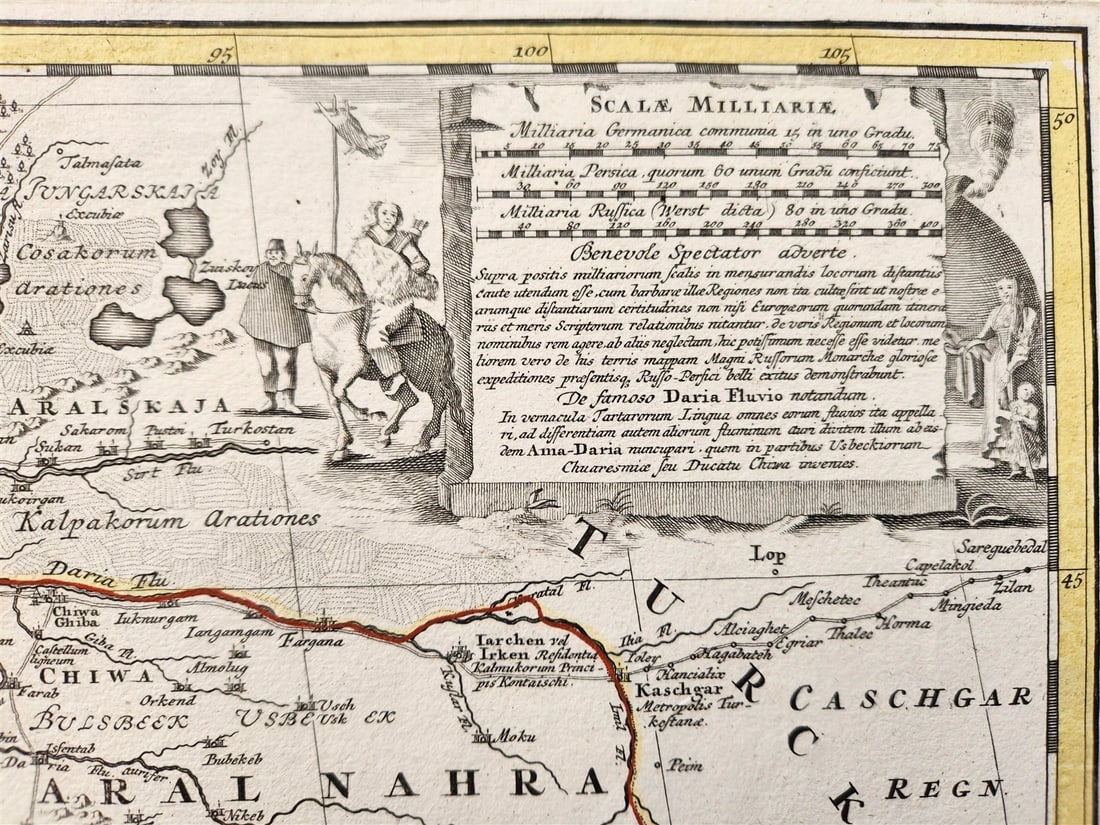 95
100
105
50
45
SCALÆ MILLIARIÆ
Milliaria Germanica communia 15 in uno Gradu.
5 10 15 20 25 30 35 40 45 50 55 60 65 70 75
Milliaria Persica, quorum 60 unum Gradū conficiunt.
30 60 90 120 150 180 210 240 270 300
Milliaria Russica (Werst dicta) 80 in uno Gradu.
40 80 120 160 200 240 280 320 360 400
Benevole Spectator adverte.
Supra positis milliariorum scalis in mensurandis locorum distantiis
caute utendum esse, cum barbaræ illæ Regiones non ita cultæ sint ut nostræ e-
arumque distantiarum certitudines non nisi Europæorum quorundam itinera
riis et meris Scriptorum relationibus nitantur. de veris Regionum et locorum
nominibus rem agere, ab aliis neglectam, hic potissimum necesse esse videtur. me
liorem vero de his terris mappam Magni Russorum Monarchæ gloriosæ
expeditiones præsentisq; Russo-Persici belli exitus demonstrabunt.
De famoso Daria Fluvio notandum.
In vernacula Tartarorum Lingua omnes eorum fluvios ita appella-
ri, ad differentiam autem aliorum fluminum auri divitem illum ab eis-
dem Ama-Daria nuncupari. quem in partibus Usbeckiorum
Chuaresmiæ seu Ducatu Chiwa invenies.
Talmasata
Zoy Fl.
JUNGARSKAJA
Excubiæ
Cosakorum
Arationes
Excubiæ
Lacus
ARALSKAJA
Sakarom
Turkostan
Sukan
Sirt Flu
Kalpakorum Arationes
Daria Flu
Chiwa
Ghiba
Iuknurgam
Iangamgam
Fargana
Giba Fl.
Castellum
ligneum
CHIWA
Almolug
Farab
Orkend
Usch
Usk
BULSBEEK
USBECK EK
Issentab
Daria Flu. aurifer
Bubekeb
Nikeb
ARAL NAHRA
Iarchen vel
Irken Residentia
Kalmukorum Princi-
pis Kontaischi.
Moku
Ilia Fl.
Toley
Imil Fl.
Kaschgar
Metropolis Tur-
kestanæ.
Peim
Hancialix
Hagabateh
Alciaghet
Egriar
Thalec
Horma
Meschetec
Theantuc
Capelakol
Mingieda
Zilan
Sareguebedal
Lop
TURCK
CASCHGAR
REGN.